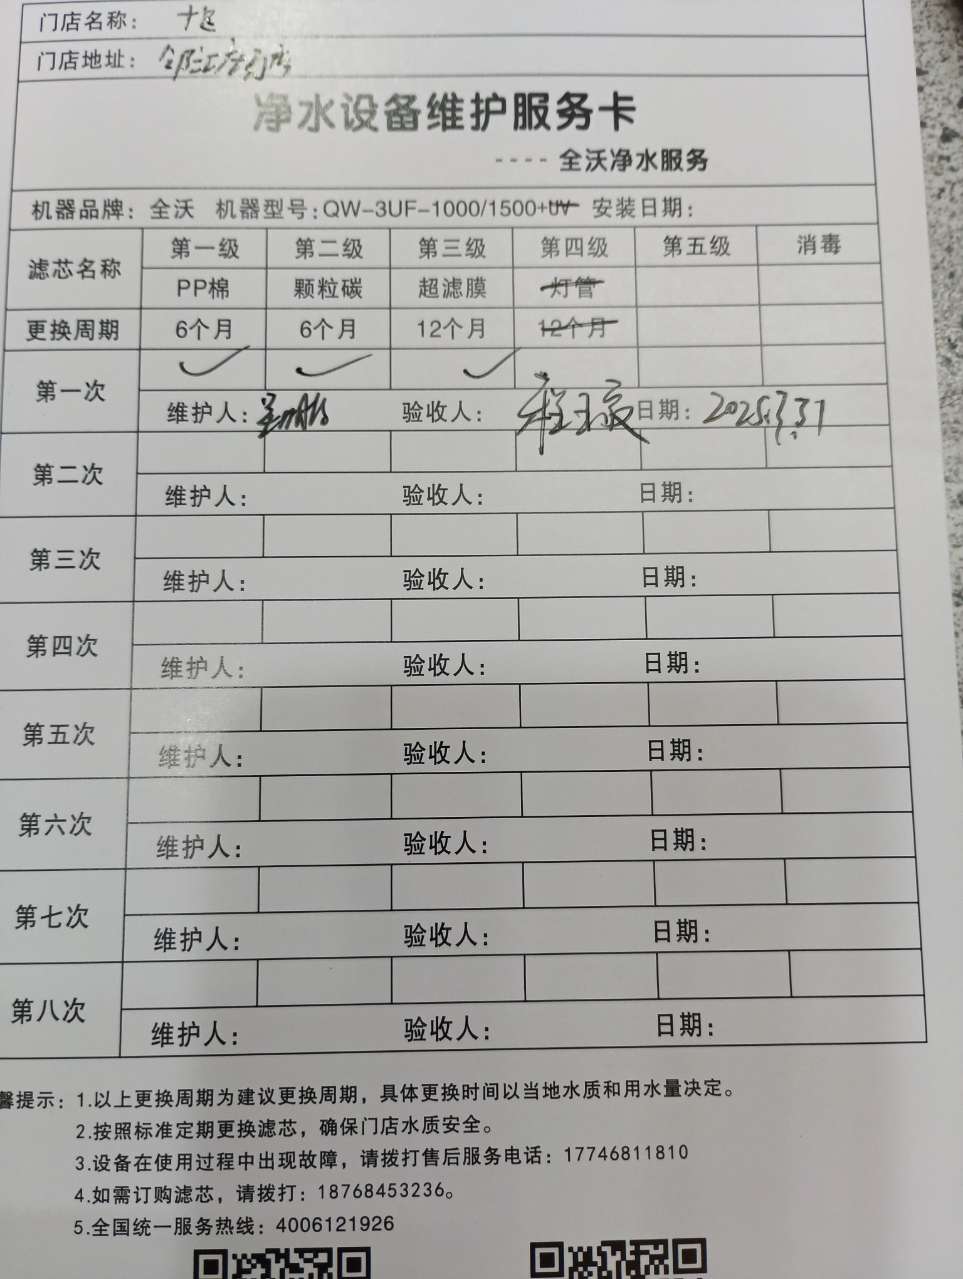 门店名称：
门店地址：
净水设备维护服务卡
---- 全沃净水服务
机器品牌：全沃 机器型号：QW-3UF-1000/1500+UV 安装日期：
滤芯名称 第一级 第二级 第三级 第四级 第五级 消毒
PP棉 颗粒碳 超滤膜 灯管
更换周期 6个月 6个月 12个月 12个月
第一次 ✓ ✓ ✓
维护人： 验收人： 日期：2025.7.31
第二次
维护人： 验收人： 日期：
第三次
维护人： 验收人： 日期：
第四次
维护人： 验收人： 日期：
第五次
维护人： 验收人： 日期：
第六次
维护人： 验收人： 日期：
第七次
维护人： 验收人： 日期：
第八次
维护人： 验收人： 日期：
馨提示：1.以上更换周期为建议更换周期，具体更换时间以当地水质和用水量决定。
2.按照标准定期更换滤芯，确保门店水质安全。
3.设备在使用过程中出现故障，请拨打售后服务电话：17746811810
4.如需订购滤芯，请拨打：18768453236。
5.全国统一服务热线：4006121926